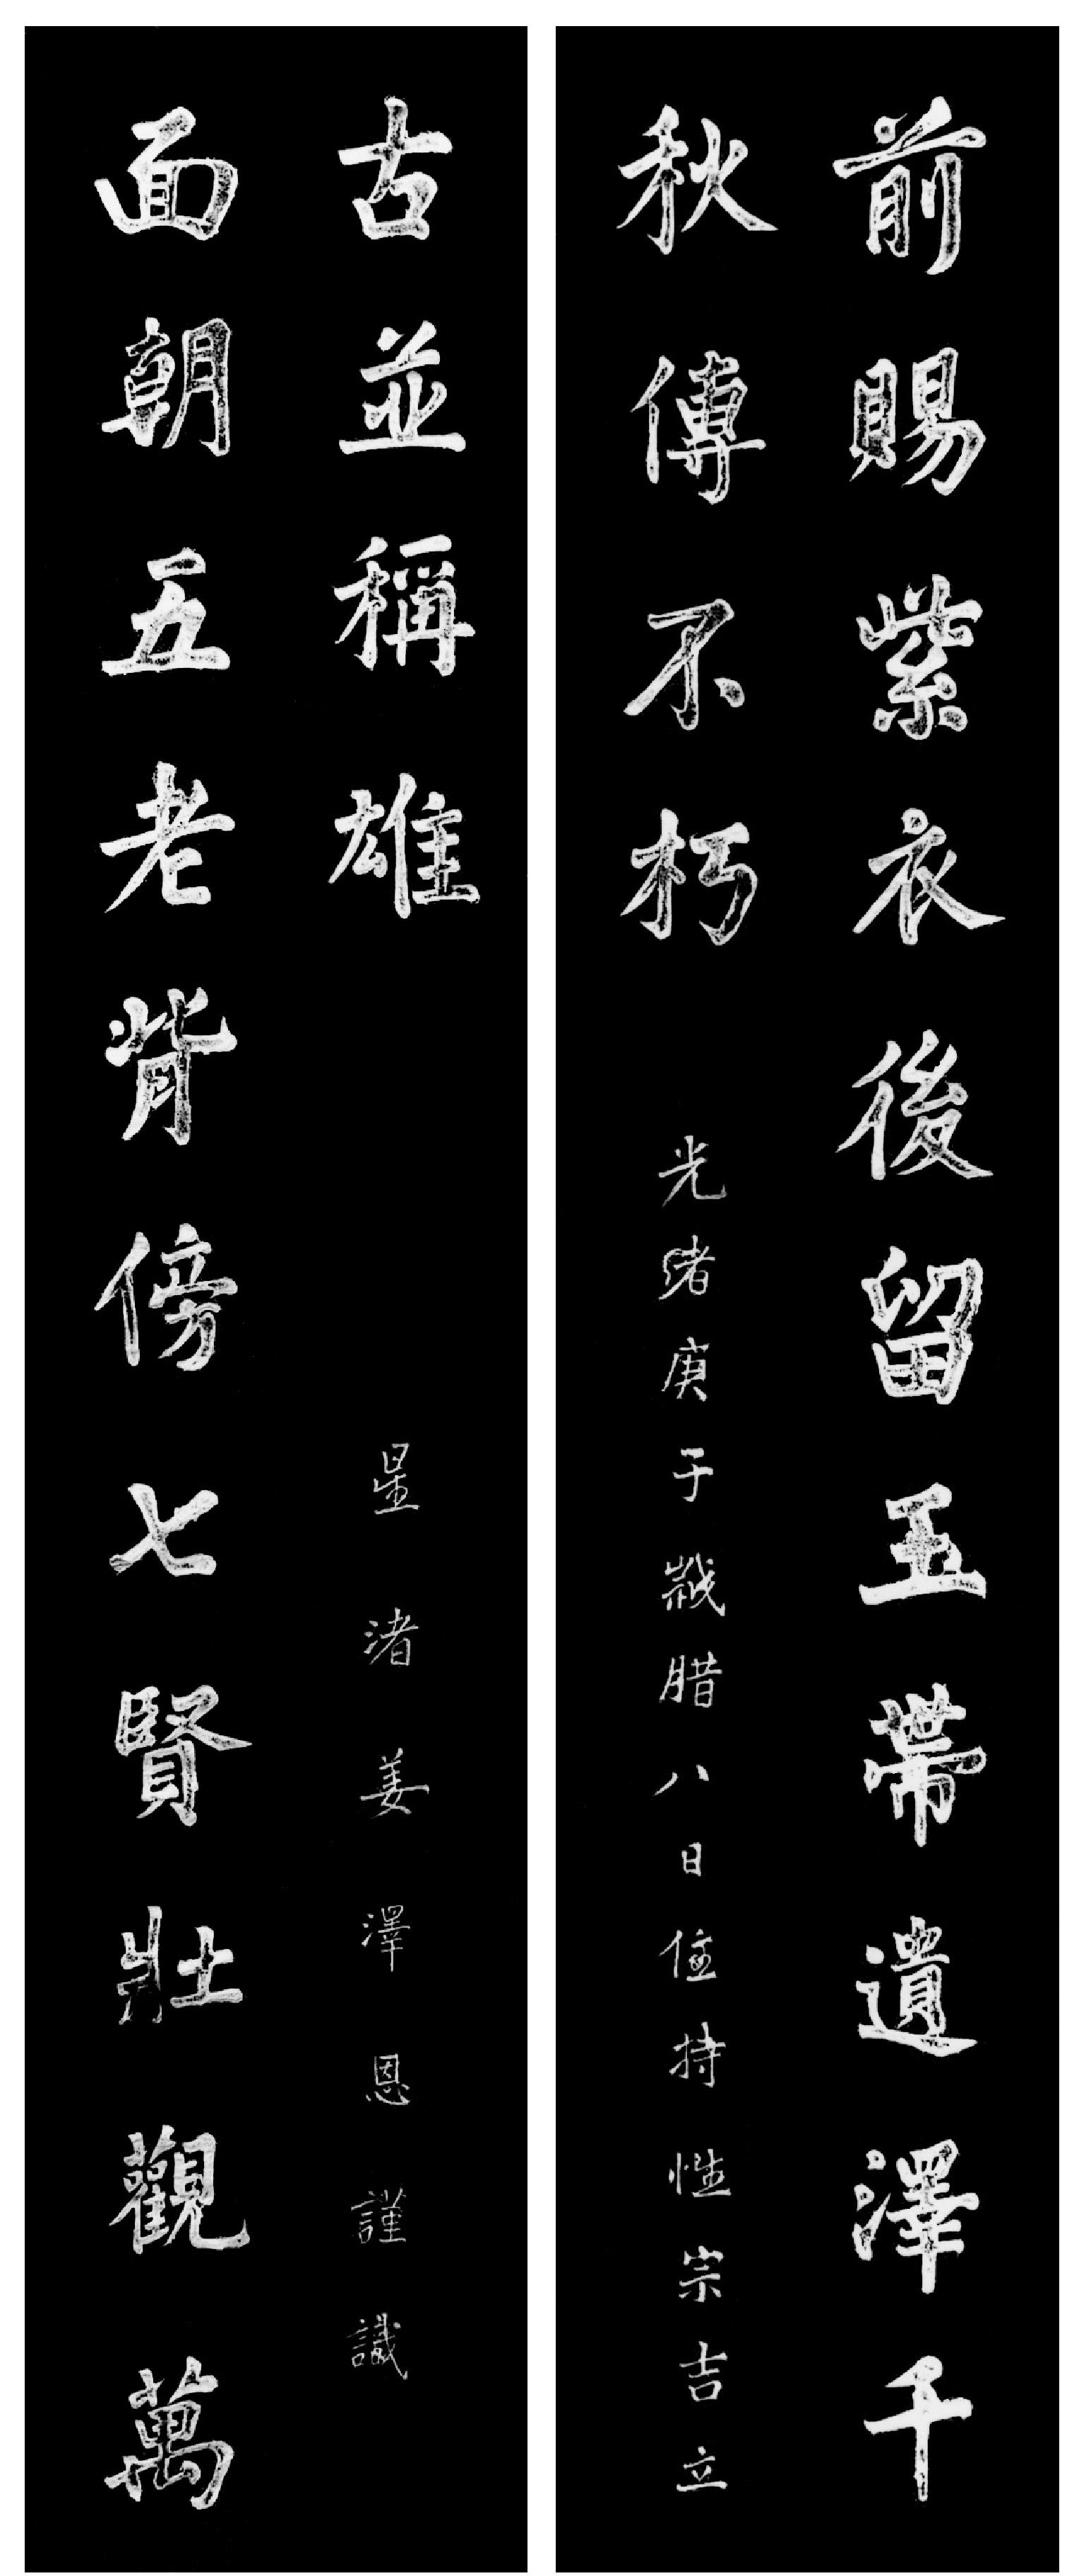 前賜紫衣後留玉帶遺澤千
秋傳不朽
光緒庚子歲腊八日住持性宗吉立
面朝五老背傍七賢壯觀萬
古並稱雄
星渚姜澤恩謹識